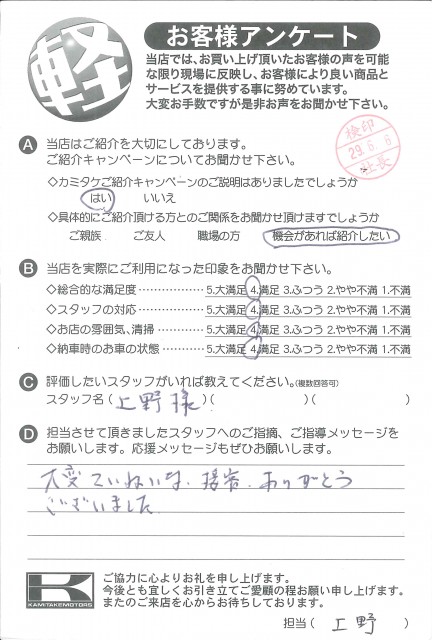 軽
お客様アンケート
当店では、お買い上げ頂いたお客様の声を可能
な限り現場に反映し、お客様により良い商品と
サービスを提供する事に努めています。
大変お手数ですが是非お声をお聞かせ下さい。
検印
29.6.6
社長
A 当店はご紹介を大切にしております。
ご紹介キャンペーンについてお聞かせ下さい。
◇カミタケご紹介キャンペーンのご説明はありましたでしょうか
はい いいえ
◇具体的にご紹介頂ける方とのご関係をお聞かせ頂けますでしょうか
ご親族 ご友人 職場の方 機会があれば紹介したい
B 当店を実際にご利用になった印象をお聞かせ下さい。
◇総合的な満足度……………… 5.大満足 4.満足 3.ふつう 2.やや不満 1.不満
◇スタッフの対応……………… 5.大満足 4.満足 3.ふつう 2.やや不満 1.不満
◇お店の雰囲気、清掃………… 5.大満足 4.満足 3.ふつう 2.やや不満 1.不満
◇納車時のお車の状態………… 5.大満足 4.満足 3.ふつう 2.やや不満 1.不満
C 評価したいスタッフがいれば教えてください。(複数回答可)
スタッフ名 ( 上野様 ) ( ) ( )
D 担当させて頂きましたスタッフへのご指摘、ご指導メッセージを
お願いします。応援メッセージもぜひお願いします。
大変ていねいな、接客、ありがとう
ございました
K
KAMITAKE MOTORS
ご協力に心よりお礼を申し上げます。
今後とも宜しくお引き立てご愛顧の程お願い申し上げます。
またのご来店を心からお待ちしております。
担当 ( 上野 )